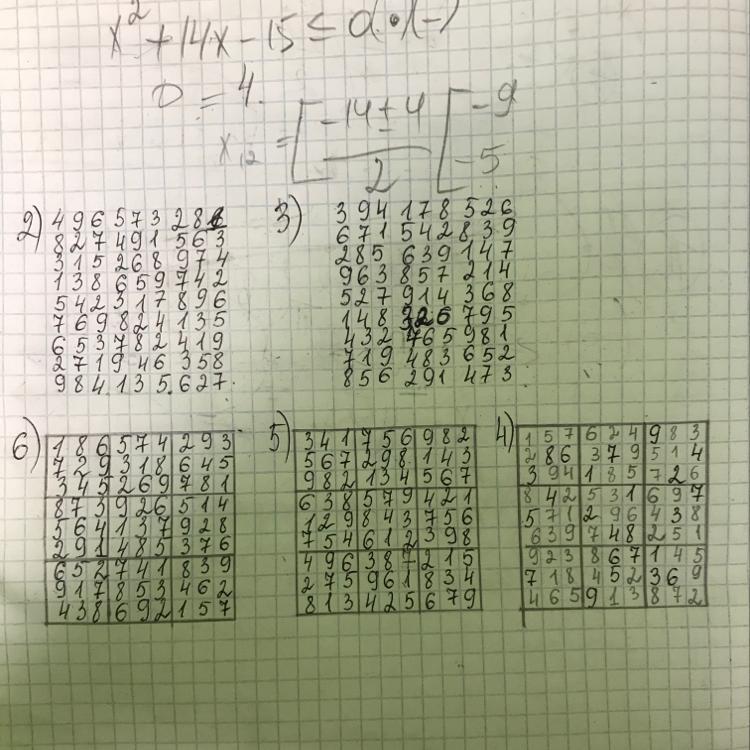 x² + 14x - 15 ≤ 0 | · (-)
D = 4.
x₁,₂ = [ (-14 ± 4) / 2 [ -9
-5
2)
4 9 6 5 7 3 2 8 1
8 2 7 4 9 1 5 6 3
3 1 5 2 6 8 9 7 4
1 3 8 6 5 9 7 4 2
5 4 2 3 1 7 8 9 6
7 6 9 8 2 4 1 3 5
6 5 3 7 8 2 4 1 9
2 7 1 9 4 6 3 5 8
9 8 4 1 3 5 6 2 7
3)
3 9 4 1 7 8 5 2 6
6 7 1 5 4 2 8 3 9
2 8 5 6 3 9 1 4 7
9 6 3 8 5 7 2 1 4
5 2 7 9 1 4 3 6 8
1 4 8 3 2 6 7 9 5
4 3 2 7 6 5 9 8 1
7 1 9 4 8 3 6 5 2
8 5 6 2 9 1 4 7 3
6)
1 8 6 5 7 4 2 9 3
7 2 9 3 1 8 6 4 5
3 4 5 2 6 9 7 8 1
8 7 3 9 2 6 5 1 4
5 6 4 1 3 7 9 2 8
2 9 1 4 8 5 3 7 6
6 5 2 7 4 1 8 3 9
9 1 7 8 5 3 4 6 2
4 3 8 6 9 2 1 5 7
5)
3 4 1 7 5 6 9 8 2
5 6 7 2 9 8 1 4 3
9 8 2 1 3 4 5 6 7
6 3 8 5 7 9 4 2 1
1 2 9 8 4 3 7 5 6
7 5 4 6 1 2 3 9 8
4 9 6 3 8 7 2 1 5
2 7 5 9 6 1 8 3 4
8 1 3 4 2 5 6 7 9
4)
1 5 7 6 2 4 9 8 3
2 8 6 3 7 9 5 1 4
3 9 4 1 8 5 7 2 6
8 4 2 5 3 1 6 9 7
5 7 1 2 9 6 4 3 8
6 3 9 7 4 8 2 5 1
9 2 3 8 6 7 1 4 5
7 1 8 4 5 2 3 6 9
4 6 5 9 1 3 8 7 2